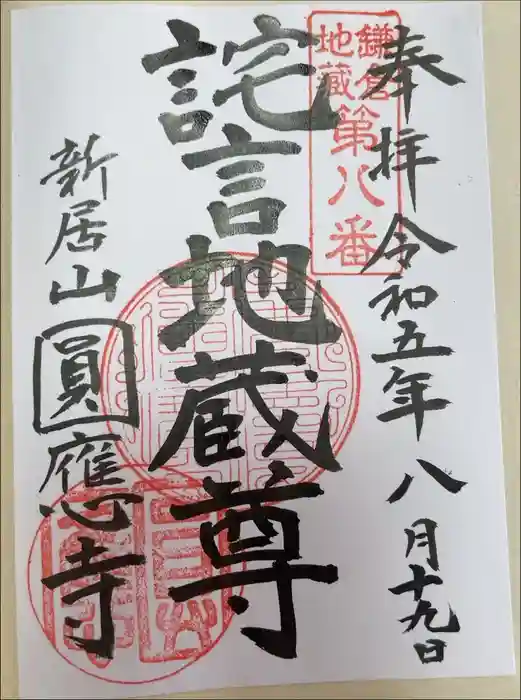 奉拝 令和五年 八月十九日
鎌倉
地蔵
第八番
詫言地蔵尊
新居山
圓應寺